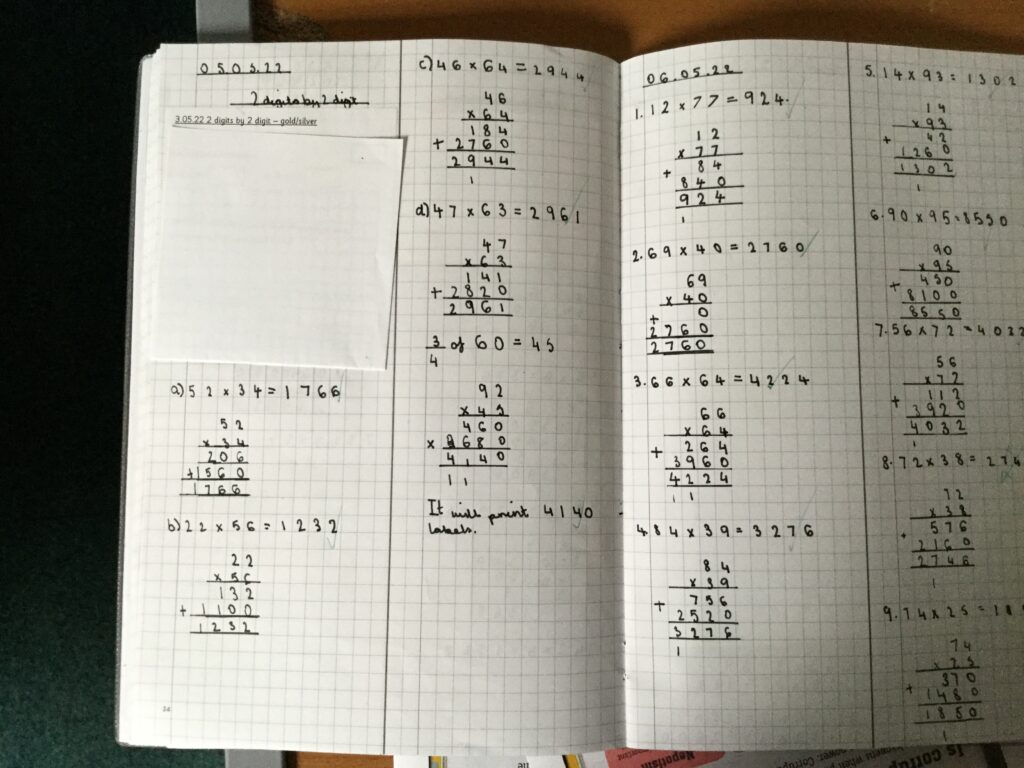 05.05.22
2 digits by 2 digit
3.05.22 2 digits by 2 digit – gold/silver
a) 52 × 34 = 1766
52
× 34
206
+ 1560
1766
b) 22 × 56 = 1232
22
× 56
132
+ 1100
1232
c) 46 × 64 = 2944
46
× 64
184
+ 2760
2944
1
d) 47 × 63 = 2961
47
× 63
141
+ 2820
2961
3/4 of 60 = 45
92
× 45
460
× 3680
4140
11
It will print 4140
labels.
06.05.22
1. 12 × 77 = 924.
12
× 77
+ 84
840
924
1
2. 69 × 40 = 2760
69
× 40
+ 0
2760
2760
3. 66 × 64 = 4224
66
× 64
+ 264
3960
4224
11
4. 84 × 39 = 3276
84
× 39
+ 756
2520
3276
1
5. 14 × 93 = 1302
14
× 93
+ 42
1260
1302
1
6. 90 × 95 = 8550
90
× 95
+ 450
8100
8550
7. 56 × 72 = 4032
56
× 72
+ 112
3920
4032
1
8. 72 × 38 = 274
72
× 38
+ 576
2160
2746
1
9. 74 × 25 = 185
74
× 25
+ 370
1480
1850
1
Nepotism
Is corrup